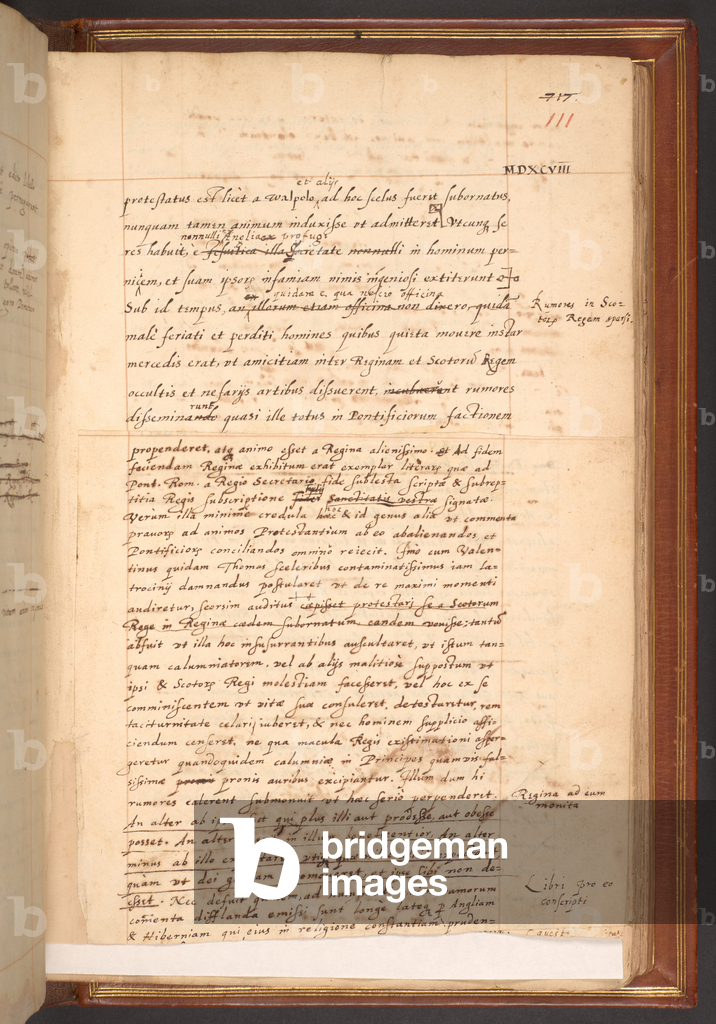 717.
111
MDXCVIII
et alijs
protestatus est licet a Walpolo, ad hoc scelus fuerit subornatus,
nunquam tamen animum induxisse vt admitteret. Vtcunq se
nonnulli Angliæ profugi
res habuit, è Jesuitica illa Societate nonnulli in hominum per-
niciem, et suam ipsorū infamiam nimis ingeniosi extiterunt
ex quidane e, qua nescio officina
Sub id tempus, an illorum etiam officina non dixero, quidā
Rumores in Sco-
torū Regem sparsi.
malè feriati et perditi homines quibus quieta mouere instar
mercedis erat, vt amicitiam inter Reginam et Scotorū Regem
occultis et nefarijs artibus dissuerent, incubuerunt rumores
runt
disseminando quasi ille totus in Pontificiorum factionem
propenderet, atq animo esset a Regina alienissimo. Et Ad fidem
faciendam Reginæ exhibitum erat exemplar literarū quæ ad
Pont. Rom. a Regio Secretario fide sublesta scriptæ & subrep-
titia Regis subscriptione Sanctitatis vestræ signatæ.
Verùm illa minimè credula hæc & id genus alia vt commenta
prauorū ad animos Protestantium ab eo abalienandos, et
Pontificiorū conciliandos omnino reiecit. Imo cum Valen-
tinus quidam Thomas sceleribus contaminatissimus iam la-
trocinij damnandus postularet vt de re maximi momenti
audiretur, seorsim auditus cæpisset protestari se a Scotorum
Rege in Reginæ cædem subornatum eandem vouisse; tantū
abfuit vt illa hoc insusurrantibus auscultaret, vt istum tan-
quam calumniatorem, vel ab alijs malitiosè suppostum vt
ipsi & Scotorū Regi molestiam facesseret, vel hoc ex se
comminiscentem vt vitæ suæ consuleret, detestaretur, rem
taciturnitate celari iuberet, & nec hominem supplicio affi-
ciendum censeret, ne qua macula Regis existimationi asper-
geretur quandoquidem calumniæ in Principes quamuis fal-
sissimæ pronis auribus excipiantur. Illum dum hi
rumores calerent submonuit vt hæc seriò perpenderet.
Regina ad eum
monita
An alter ab qui plus illi aut prodesse, aut obesse
posset. An alter in illum An alter
minus ab illo
quàm vt dei et ipse sibi non de-
esset. Nec defuit ad amorum
Libri pro eo
conscripti
comenta difflanda emissi sunt longe lateq per Angliam
& Hiberniam qui eius in religione constantiam pruden-
bridgeman
images